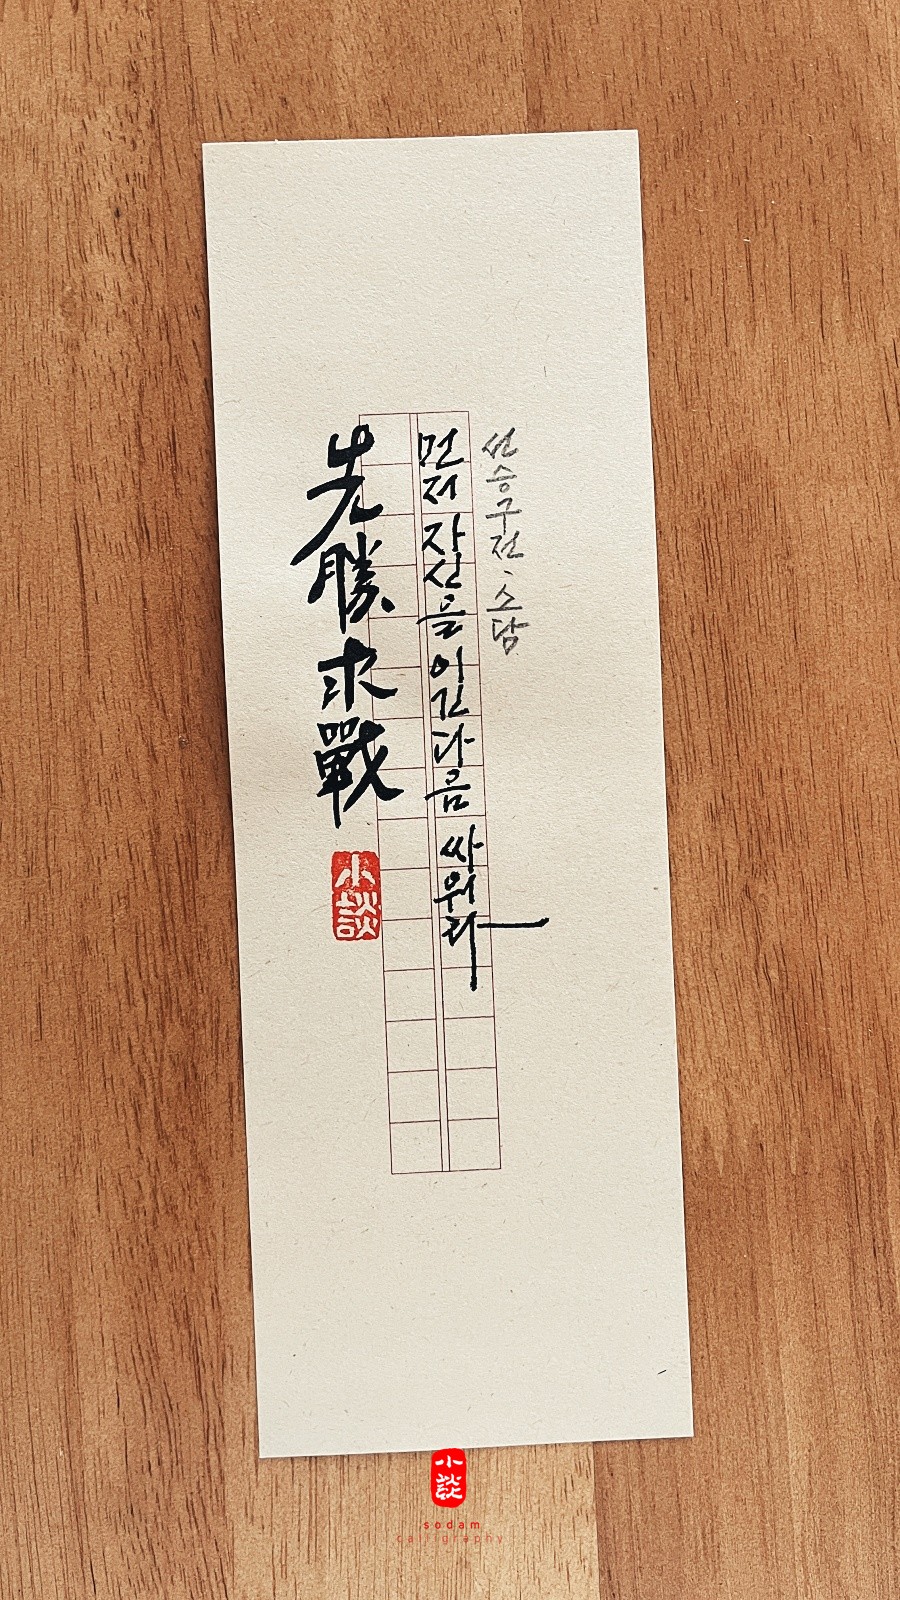 先勝求戰
小談
먼저 자신을 이긴 다음 싸워라
선승구전、소담
小談
sodam
calligraphy